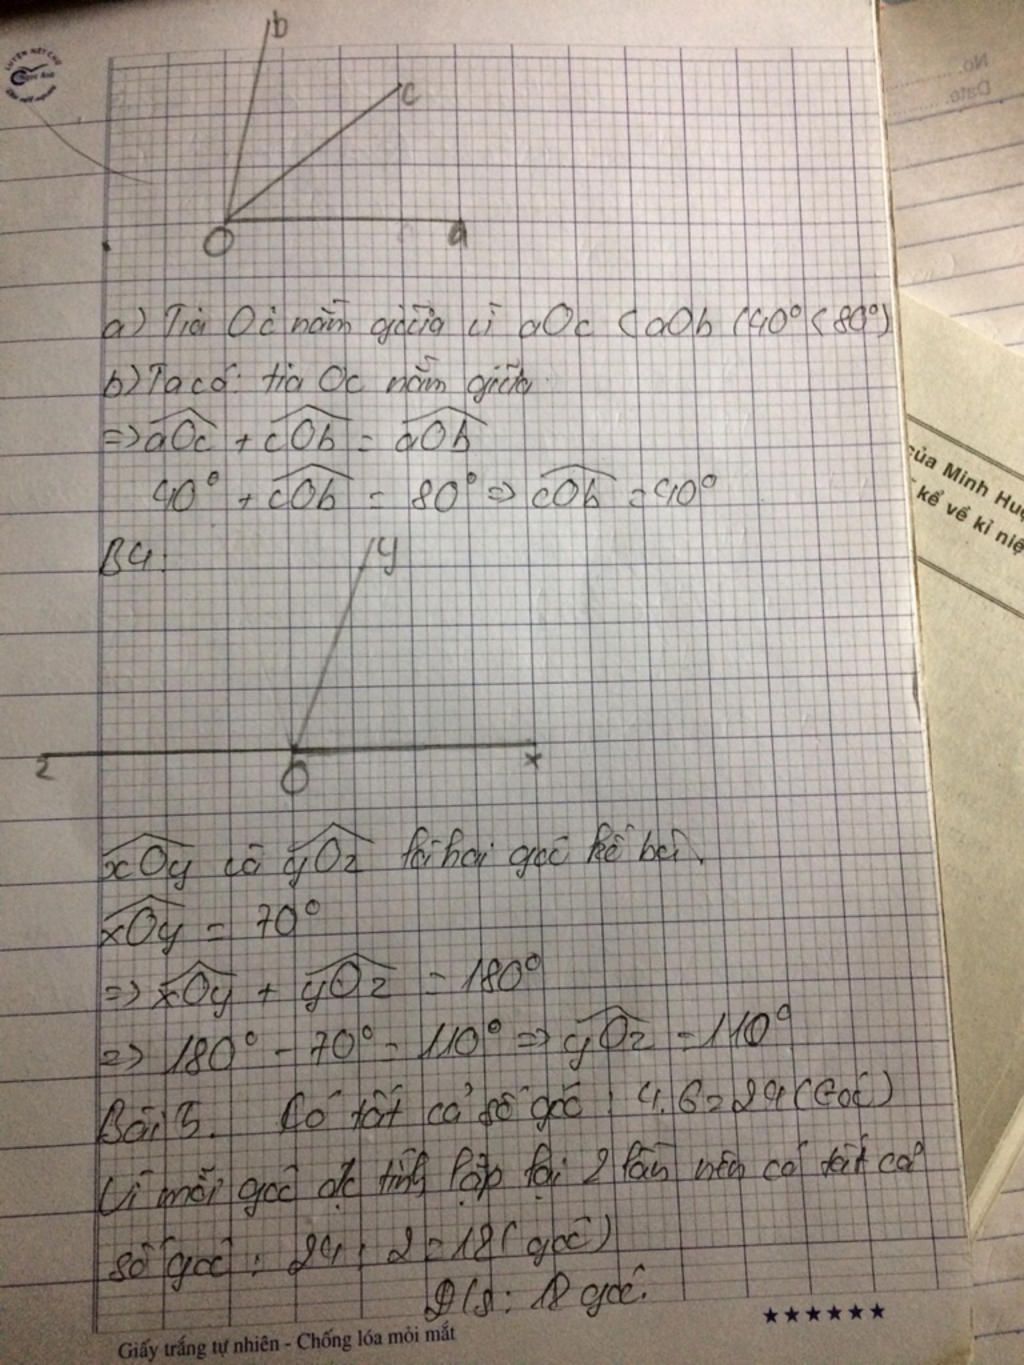 b
c
O
a
a) Tia Oc nằm giữa vì aOc < aOb (40° < 80°)
b) Ta có: tia Oc nằm giữa
=> aOc + cOb = aOb
40° + cOb = 80° => cOb = 40°
B4:
y
z
O
x
xOy và yOz là hai góc kề bù.
xOy = 70°
=> xOy + yOz = 180°
=> 180° - 70° = 110° => yOz = 110°
Bài 5. Có tất cả số góc: 4.6 = 24 (Góc)
Vì mỗi góc đc tính lặp lại 2 lần nên có tất cả
số góc: 24 : 2 = 12 (góc)
Đ/S: 12 góc.
Giấy trắng tự nhiên - Chống lóa mỏi mắt
No.
Date
của Minh Huệ
kể về kỉ niệ